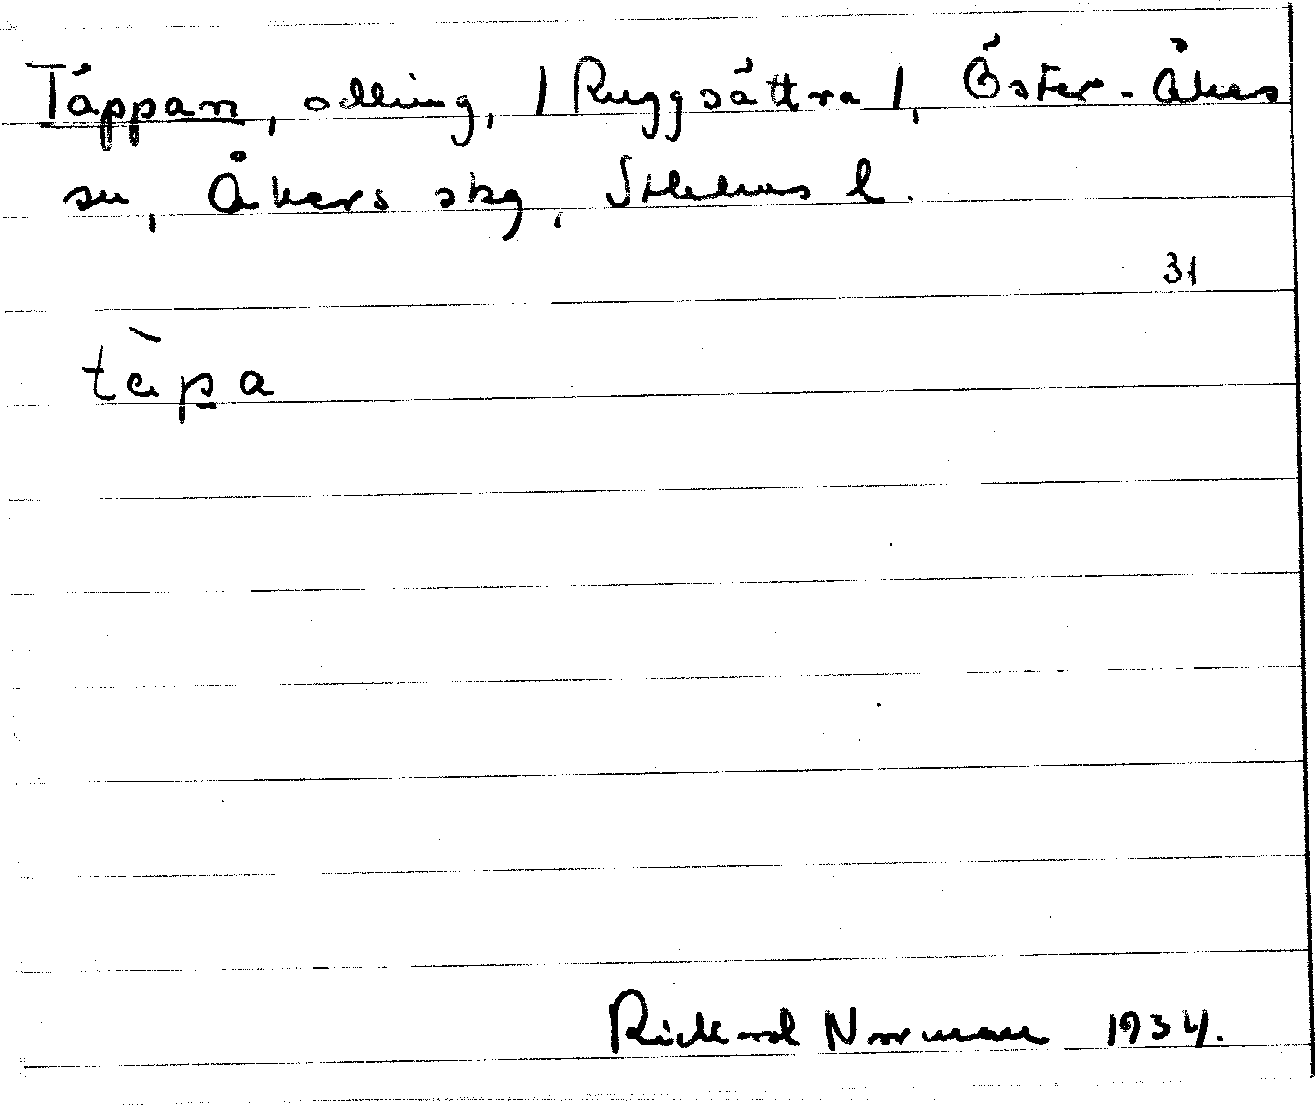 Täppan, odling, / Ruggsättra /, Öster-Åkers
sn, Åkers skg, Sthlms l.
31
tèpa
Rickard Norrman 1934.